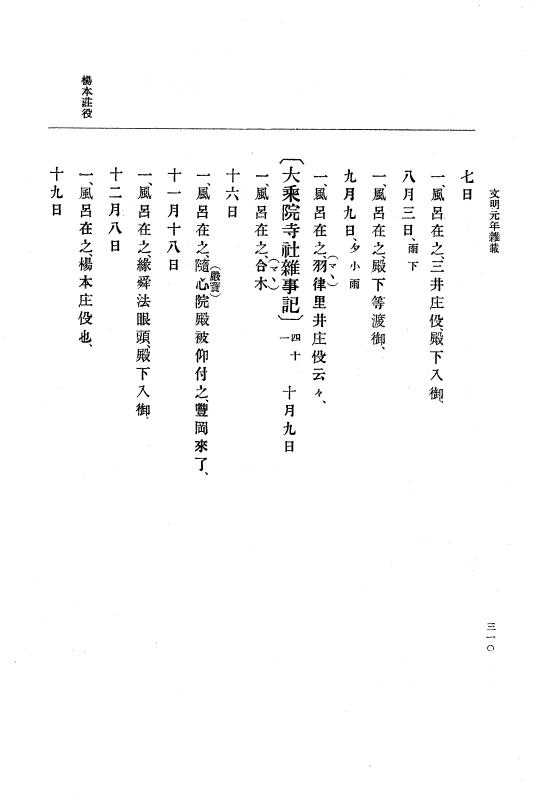 文明元年雜載
三一〇
七日
一、風呂在之、三井庄役、殿下入御、
八月三日、雨下
一、風呂在之、殿下等渡御、
九月九日、夕小雨
一、風呂在之、羽律里井庄役云々、
(マヽ)
〔大乘院寺社雜事記〕四十一 十月九日
一、風呂在之、合木
(マヽ)
十六日
一、風呂在之、隨心院殿被仰付之、豐岡來了、
(嚴寶)
十一月十八日
一、風呂在之、緣舜法眼頭、殿下入御、
十二月八日
一、風呂在之、楊本庄役也、
十九日
楊本莊役